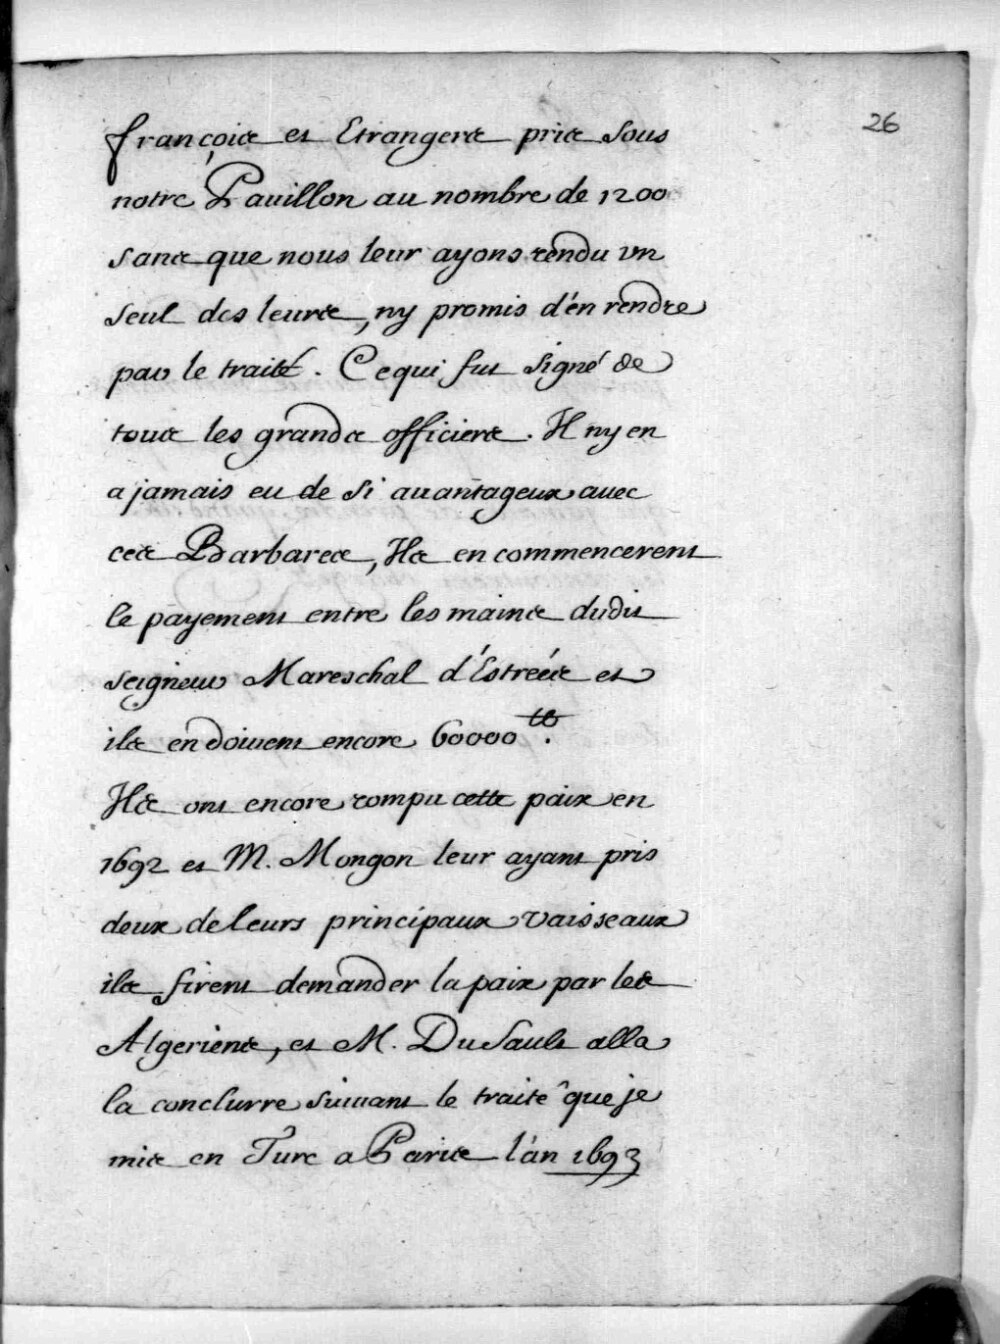 26
françois et Etrangers pris sous
notre Pavillon au nombre de 1200
sans que nous leur ayons rendu vn
seul des leurs, ny promis d'en rendre
par le traité. Ce qui fut signé de
tous les grands officiers. Il ny en
a jamais eu de si auantageux auec
ces Barbares, Ils en commencerent
le payement entre les mains dudit
seigneur Mareschal d'Estrées et
ils en doiuent encore 60000 ℔.
Ils ont encore rompu cette paix en
1692 et M. Mongon leur ayant pris
deux de leurs principaux vaisseaux
ils firent demander la paix par les
Algeriens, et M. Du Sault alla
la conclurre suiuant le traité que je
mis en Turc a Paris l'an 1693